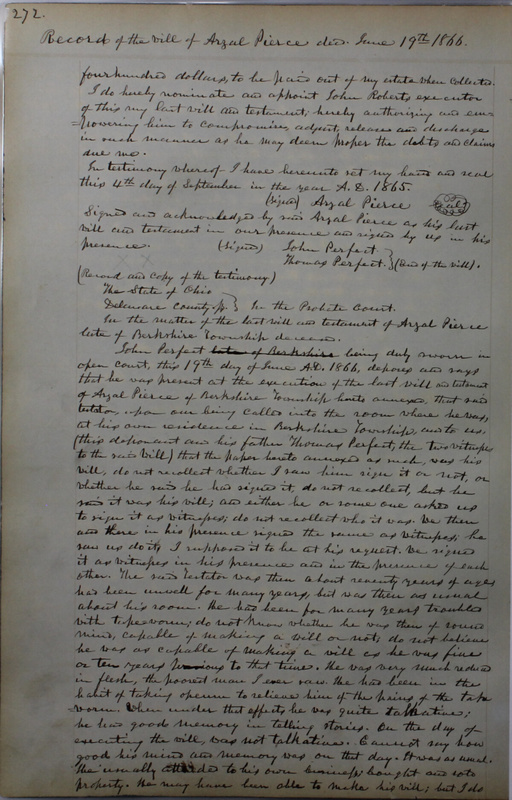 272.
Record of the will of Arzal Pierce decd. June 19th 1866.
four hundred dollars, to be paid out of my estate when collected.
I do hereby nominate and appoint John Roberts executor
of this my last will and testament, hereby authorizing and em=
=powering him to compromise, adjust, release and discharge
in such manner as he may deem proper the debts and claims
due me.
In testimony whereof I have hereunto set my hand and seal
this 4th day of September in the year A.D. 1865.
(signed) Arzal Pierce (Seal)
Signed and acknowledged by said Arzal Pierce as his last
will and testament in our presence and signed by us in his
presence. (Signed) John Perfect
Thomas Perfect. } (End of the will).
(Record and copy of the testimony)
The State of Ohio
Delaware County ss } In the Probate Court.
In the matter of the last will and testament of Arzal Pierce
late of Berkshire Township deceased.
John Perfect late of Berkshire being duly sworn in
open court, this 19th day of June A.D. 1866, deposes and says
that he was present at the execution of the last will and testament
of Arzal Pierce of Berkshire Township hereto annexed, that said
testator, upon our being called into the room where he was,
at his own residence in Berkshire Township, said to us
(this deponant and his father Thomas Perfect, the two witnesses
to the said Will) that the paper hereto annexed as such, was his
will, do not recollect whether I saw him sign it or not, or
whether he said he had signed it, do not recollect, but he
said it was his will; and either he or some one asked us
to sign it as witnesses; do not recollect who it was. We then
and there in his presence signed the same as witnesses; he
saw us do it; I supposed it to be at his request. We signed
it as witnesses in his presence and in the presence of each
other. The said testator was then about seventy years of age;
had been unwell for many years, but was then as usual
about his room. He had been for many years troubled
with tape worm; do not know whether he was then of sound
mind, capable of making a will or not; do not believe
he was as capable of making a will as he was five
or ten years previous to that time. He was very much reduced
in flesh, the poorest man I ever saw. He had been in the
habit of taking opium to relieve him of the pains of the tape
worm. When under that effects he was quite talkative;
he had good memory in telling stories. On the day of
executing the will, was not talkative. Cannot say how
good his mind and memory was on that day. It was as usual.
He usually attended to his own business; bought and sold
property. He may have been able to make his will; but I do